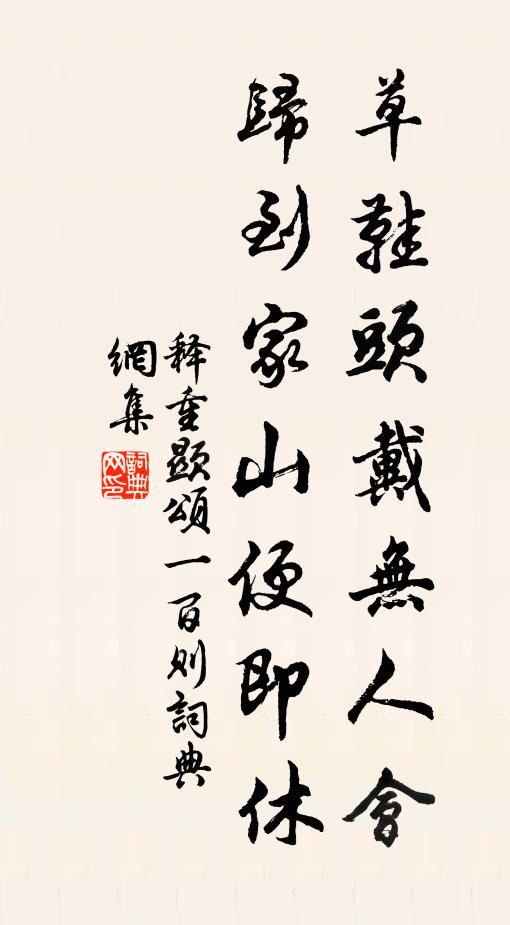 草鞋頭戴無人會
歸到家山便即休
释重顯頌一百则詞典
網集
詞典网印